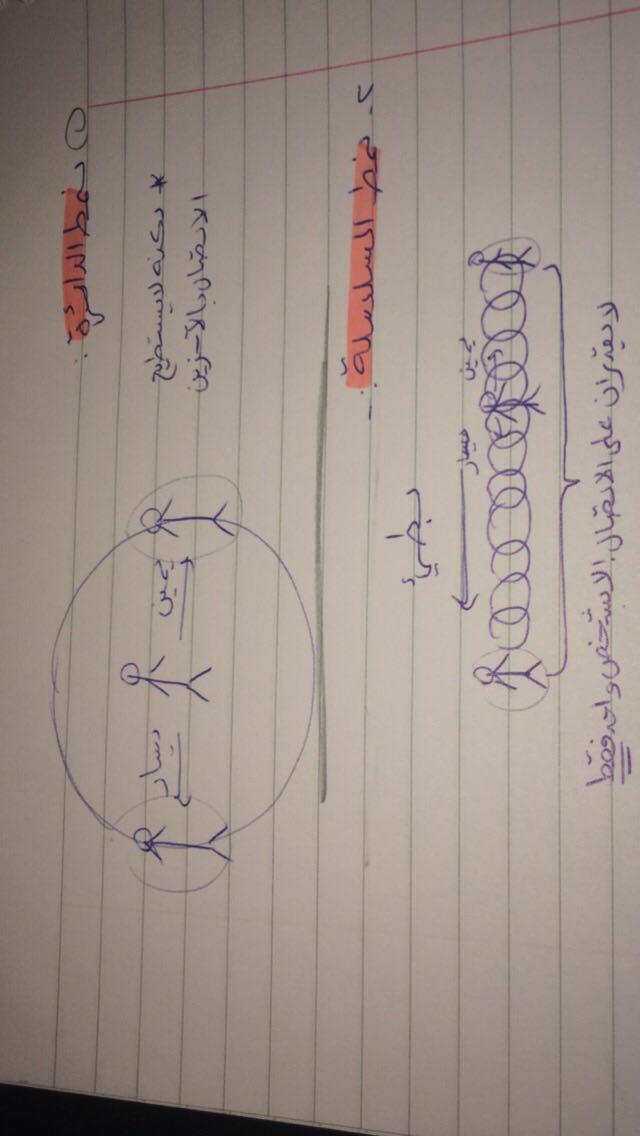 ① نمط الدائرة :
* لكنه لا يستطيع
الاتصال بالآخرين
يمين
يسار
٢- نمط السلسلة :-
بطيئ
يمين
يسار
لا يقدران على الاتصال الا شخص واحد فقط